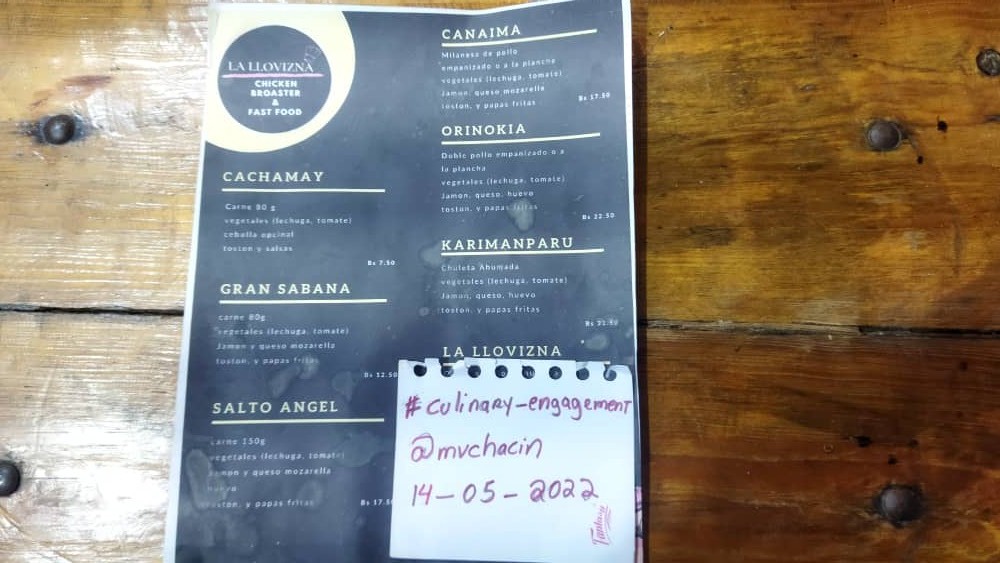 LA LLOVIZNA
CHICKEN
BROASTER
&
FAST FOOD
CACHAMAY
Carne 80 g
vegetales (lechuga, tomate)
cebolla opcinal
toston y salsas
Bs 7.50
GRAN SABANA
carne 80g
vegetales (lechuga, tomate)
Jamon y queso mozarella
toston, y papas fritas
Bs 12.50
SALTO ANGEL
carne 150g
vegetales (lechuga, tomate)
Jamon y queso mozarella
huevo
toston, y papas fritas
Bs 17.50
CANAIMA
Milanesa de pollo
empanizado o a la plancha
vegetales (lechuga, tomate)
Jamon, queso mozarella
toston, y papas fritas
Bs 17.50
ORINOKIA
Doble pollo empanizado o a
la plancha
vegetales (lechuga, tomate)
Jamon, queso, huevo
toston, y papas fritas
Bs 22.50
KARIMANPARU
Chuleta Ahumada
vegetales (lechuga, tomate)
Jamon, queso, huevo
toston, y papas fritas
Bs
LA LLOVIZNA
#culinary-engagement
@mvchacin
14-05-2022
Fantasy